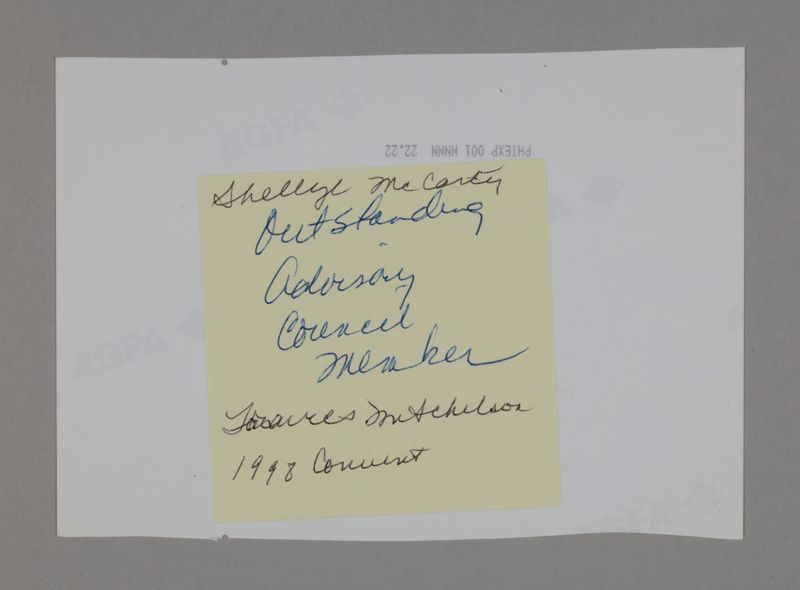 AGFA
PHTEXP 001 NNNN 22.22
Shellye McCarty
Outstanding
Advisory
Council
Member
Mitchelson
1998 Convent
AGFA
AGFA